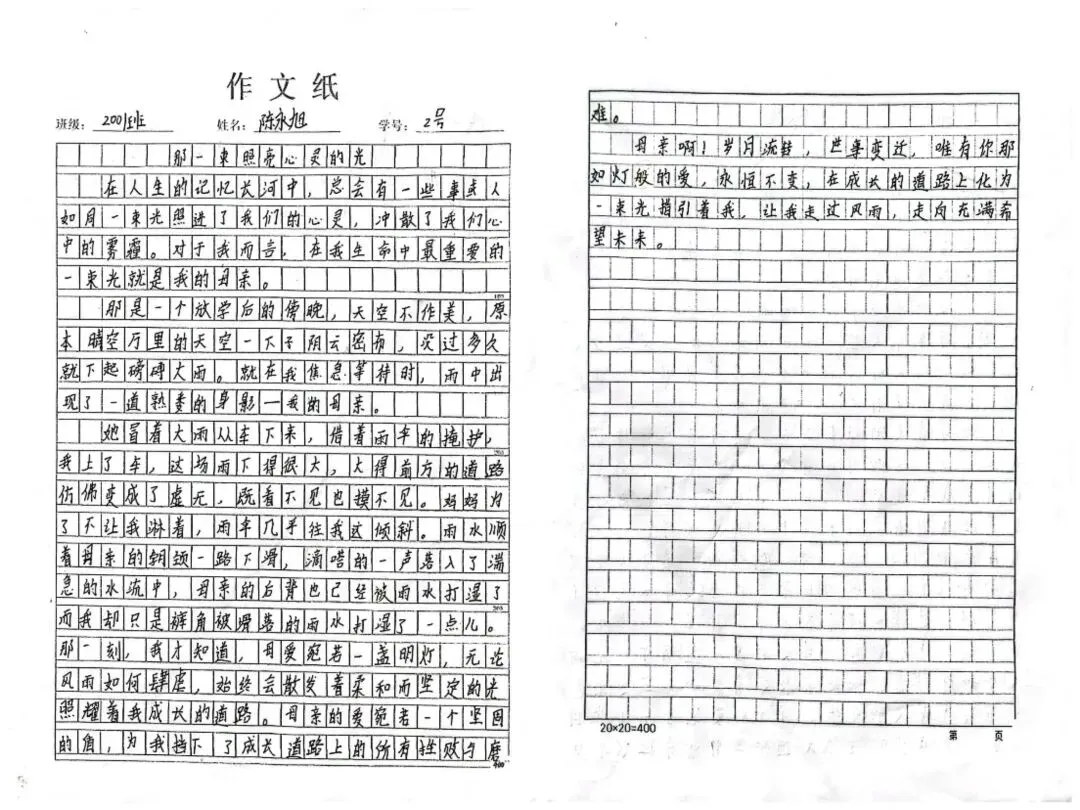 作文纸
班级：2001班 姓名：陈永旭 学号：2号
那一束照亮心灵的光
在人生的记忆长河中，总会有一些事或人
如同一束光照进了我们的心灵，冲散了我们心
中的雾霾。对于我而言，在我生命中最重要的
一束光就是我的母亲。
100
那是一个放学后的傍晚，天空不作美，原
本晴空万里的天空一下子阴云密布，没过多久
就下起磅礴大雨。就在我焦急等待时，雨中出
现了一道熟悉的身影一我的母亲。
她冒着大雨从车下来，借着雨伞的掩护，
200
我上了车，这场雨下得很大，大得前方的道路
仿佛变成了虚无，既看不见也摸不见。妈妈为
了不让我淋着，雨伞几乎往我这倾斜。雨水顺
着母亲的颈一路下滑，滴嗒的一声落入了湍
急的水流中，母亲的后背也已经被雨水打湿了
300
而我却只是裤角被滑落的雨水打湿了一点儿。
那一刻，我才知道，母爱宛若一盏明灯，无论
风雨如何肆虐，始终会散发着柔和而坚定的光
照耀着我成长的道路。母亲的爱宛若一个坚固
的盾，为我挡下了成长道路上的所有挫败与磨
400
难。
母亲啊！岁月流转，世事变迁，唯有你那
如灯般的爱，永恒不变，在成长的道路上化为
一束光指引着我，让我走过风雨，走向充满希
望未来。
20×20=400 第 页